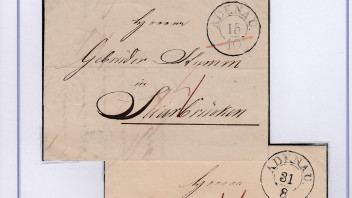 ADENAU
15
10
Herren
Gebrüder Stumm
in
Saarbrücken
ADENAU
31
8
Herren